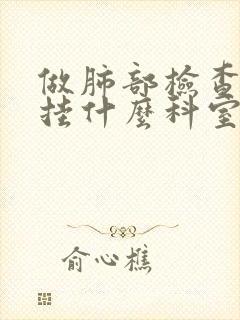 做肺部檢查
挂什麼科室
俞心樵